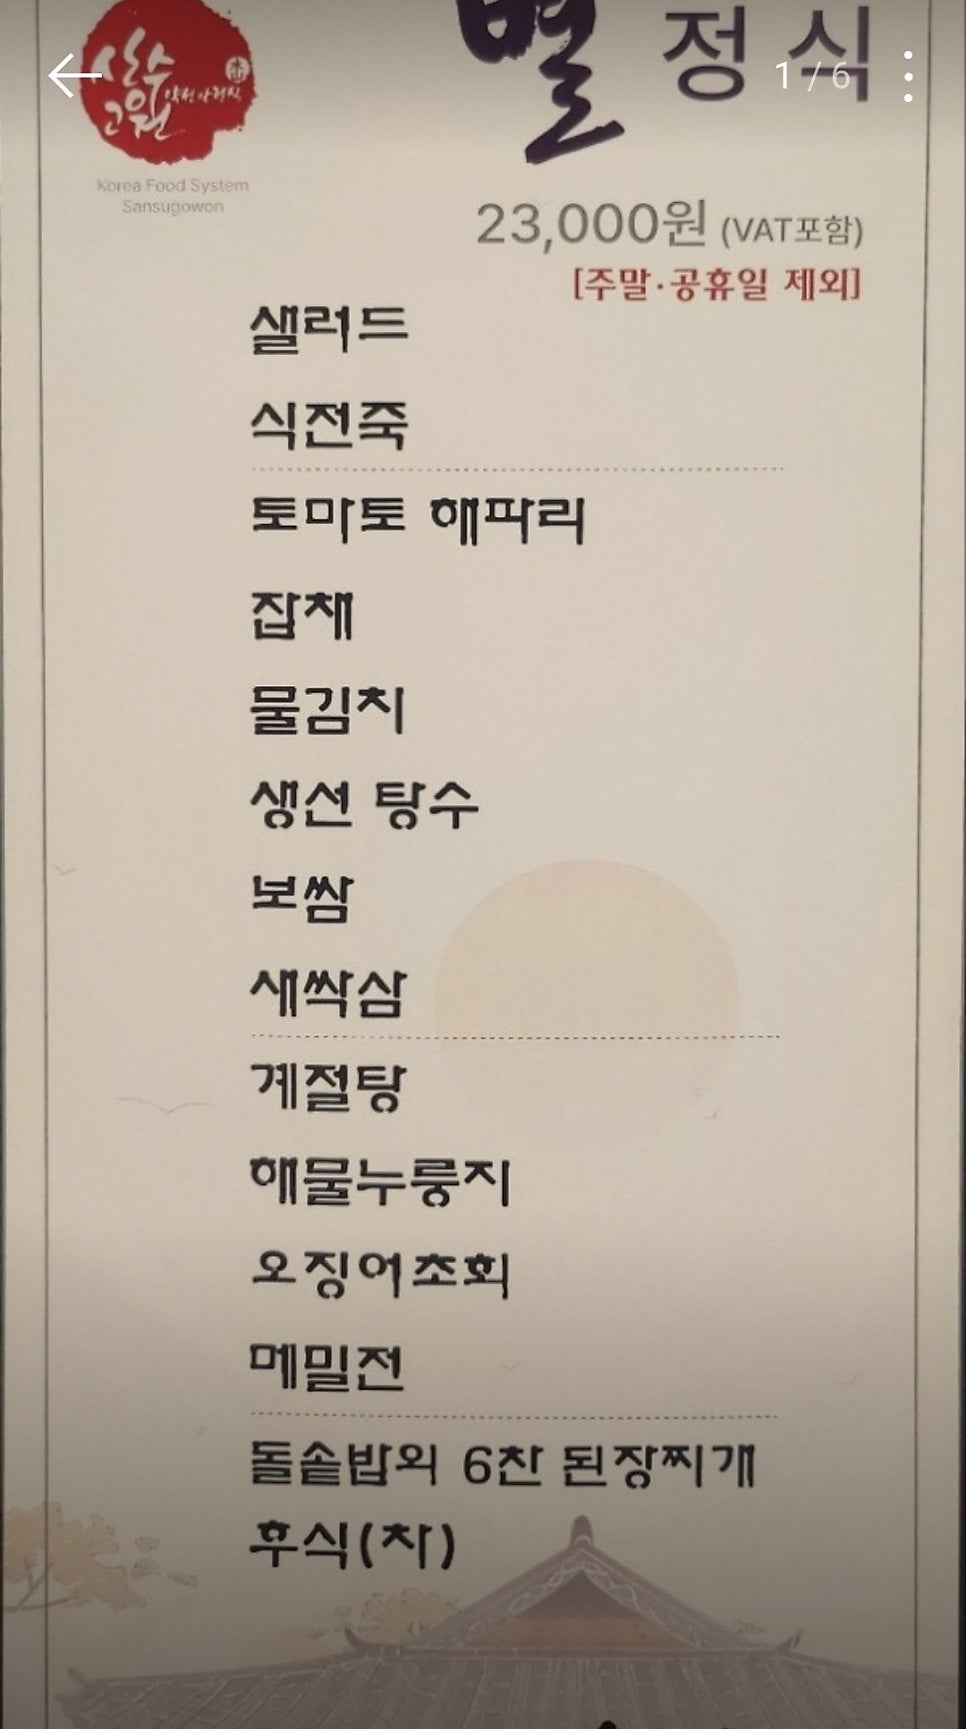 산수
고원
약선한정식
Korea Food System
Sansugowon
별 정식
1 / 6
23,000원 (VAT포함)
[주말·공휴일 제외]
샐러드
식전죽
토마토 해파리
잡채
물김치
생선 탕수
보쌈
새싹삼
계절탕
해물누룽지
오징어초회
메밀전
돌솥밥외 6찬 된장찌개
후식(차)